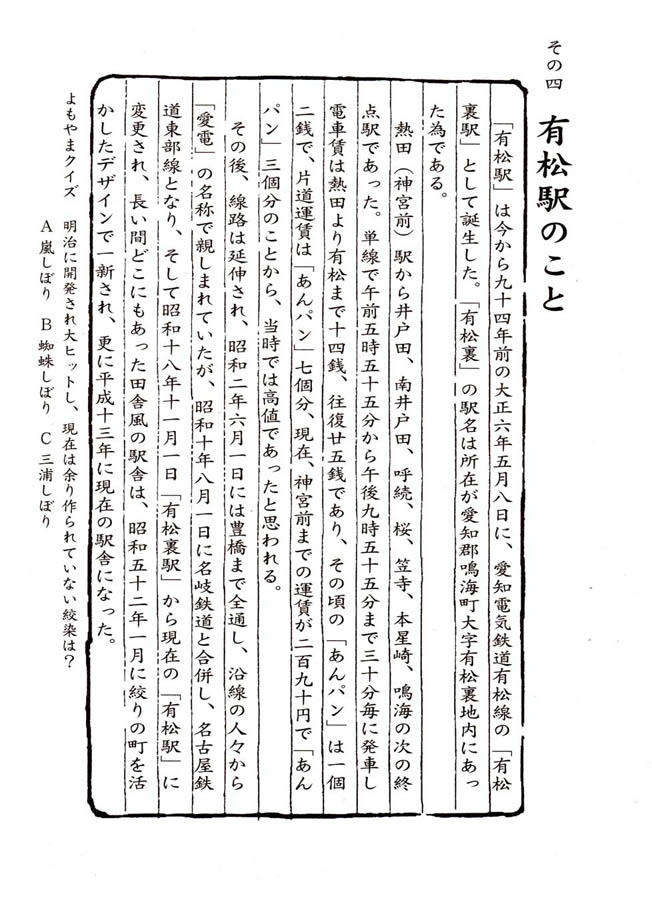 その四
有松駅のこと
「有松駅」は今から九十四年前の大正六年五月八日に、愛知電気鉄道有松線の「有松
裏駅」として誕生した。「有松裏」の駅名は所在が愛知郡鳴海町大字有松裏地内にあっ
た為である。
熱田（神宮前）駅から井戸田、南井戸田、呼続、桜、笠寺、本星崎、鳴海の次の終
点駅であった。単線で午前五時五十五分から午後九時五十五分まで三十分毎に発車し
電車賃は熱田より有松まで十四銭、往復廿五銭であり、その頃の「あんパン」は一個
二銭で、片道運賃は「あんパン」七個分、現在、神宮前までの運賃が二百九十円で「あん
パン」三個分のことから、当時では高値であったと思われる。
その後、線路は延伸され、昭和二年六月一日には豊橋まで全通し、沿線の人々から
「愛電」の名称で親しまれていたが、昭和十年八月一日に名岐鉄道と合併し、名古屋鉄
道東部線となり、そして昭和十八年十一月一日「有松裏駅」から現在の「有松駅」に
変更され、長い間どこにもあった田舎風の駅舎は、昭和五十二年一月に絞りの町を活
かしたデザインで一新され、更に平成十三年に現在の駅舎になった。
よもやまクイズ　明治に開発され大ヒットし、現在は余り作られていない絞染は？
A 嵐しぼり　B 蜘蛛しぼり　C 三浦しぼり